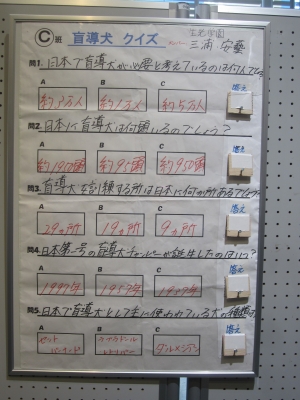 C 班 盲導犬 クイズ
三浦 安藝
問1. 日本で盲導犬が必要と考えているのは何人でしょう
A B C 答え
約3万人 約1万人 約5万人
問2. 日本に盲導犬は何頭いるのでしょう？
A B C 答え
約1950頭 約95頭 約950頭
問3. 盲導犬を訓練する所は日本に何か所あるでしょう
A B C 答え
29ヵ所 19ヵ所 9ヵ所
問4. 日本第一号の盲導犬チャンピーが誕生したのはいつ？
A B C 答え
1997年 1957年
問5. 日本で盲導犬として主に使われている犬の種類は
A B C 答え
セント バーナード
ラブラドール レトリバー
ダルメシアン